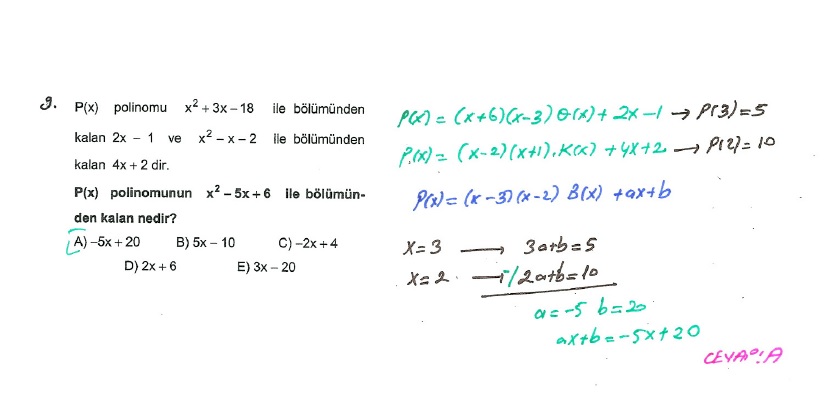 9. P(x) polinomu x² + 3x – 18 ile bölümünden
kalan 2x – 1 ve x² – x – 2 ile bölümünden
kalan 4x + 2 dir.
P(x) polinomunun x² – 5x + 6 ile bölümün-
den kalan nedir?
A) –5x + 20 B) 5x – 10 C) –2x + 4
D) 2x + 6 E) 3x – 20
P(x) = (x+6)(x-3) Q(x) + 2x -1 → P(3) = 5
P(x) = (x-2)(x+1).K(x) + 4x+2 → P(2) = 10
P(x) = (x-3)(x-2) B(x) + ax+b
x=3 → 3a+b=5
x=2 → -1/ 2a+b=10
a=-5 b=20
ax+b = -5x+20
CEVAP: A